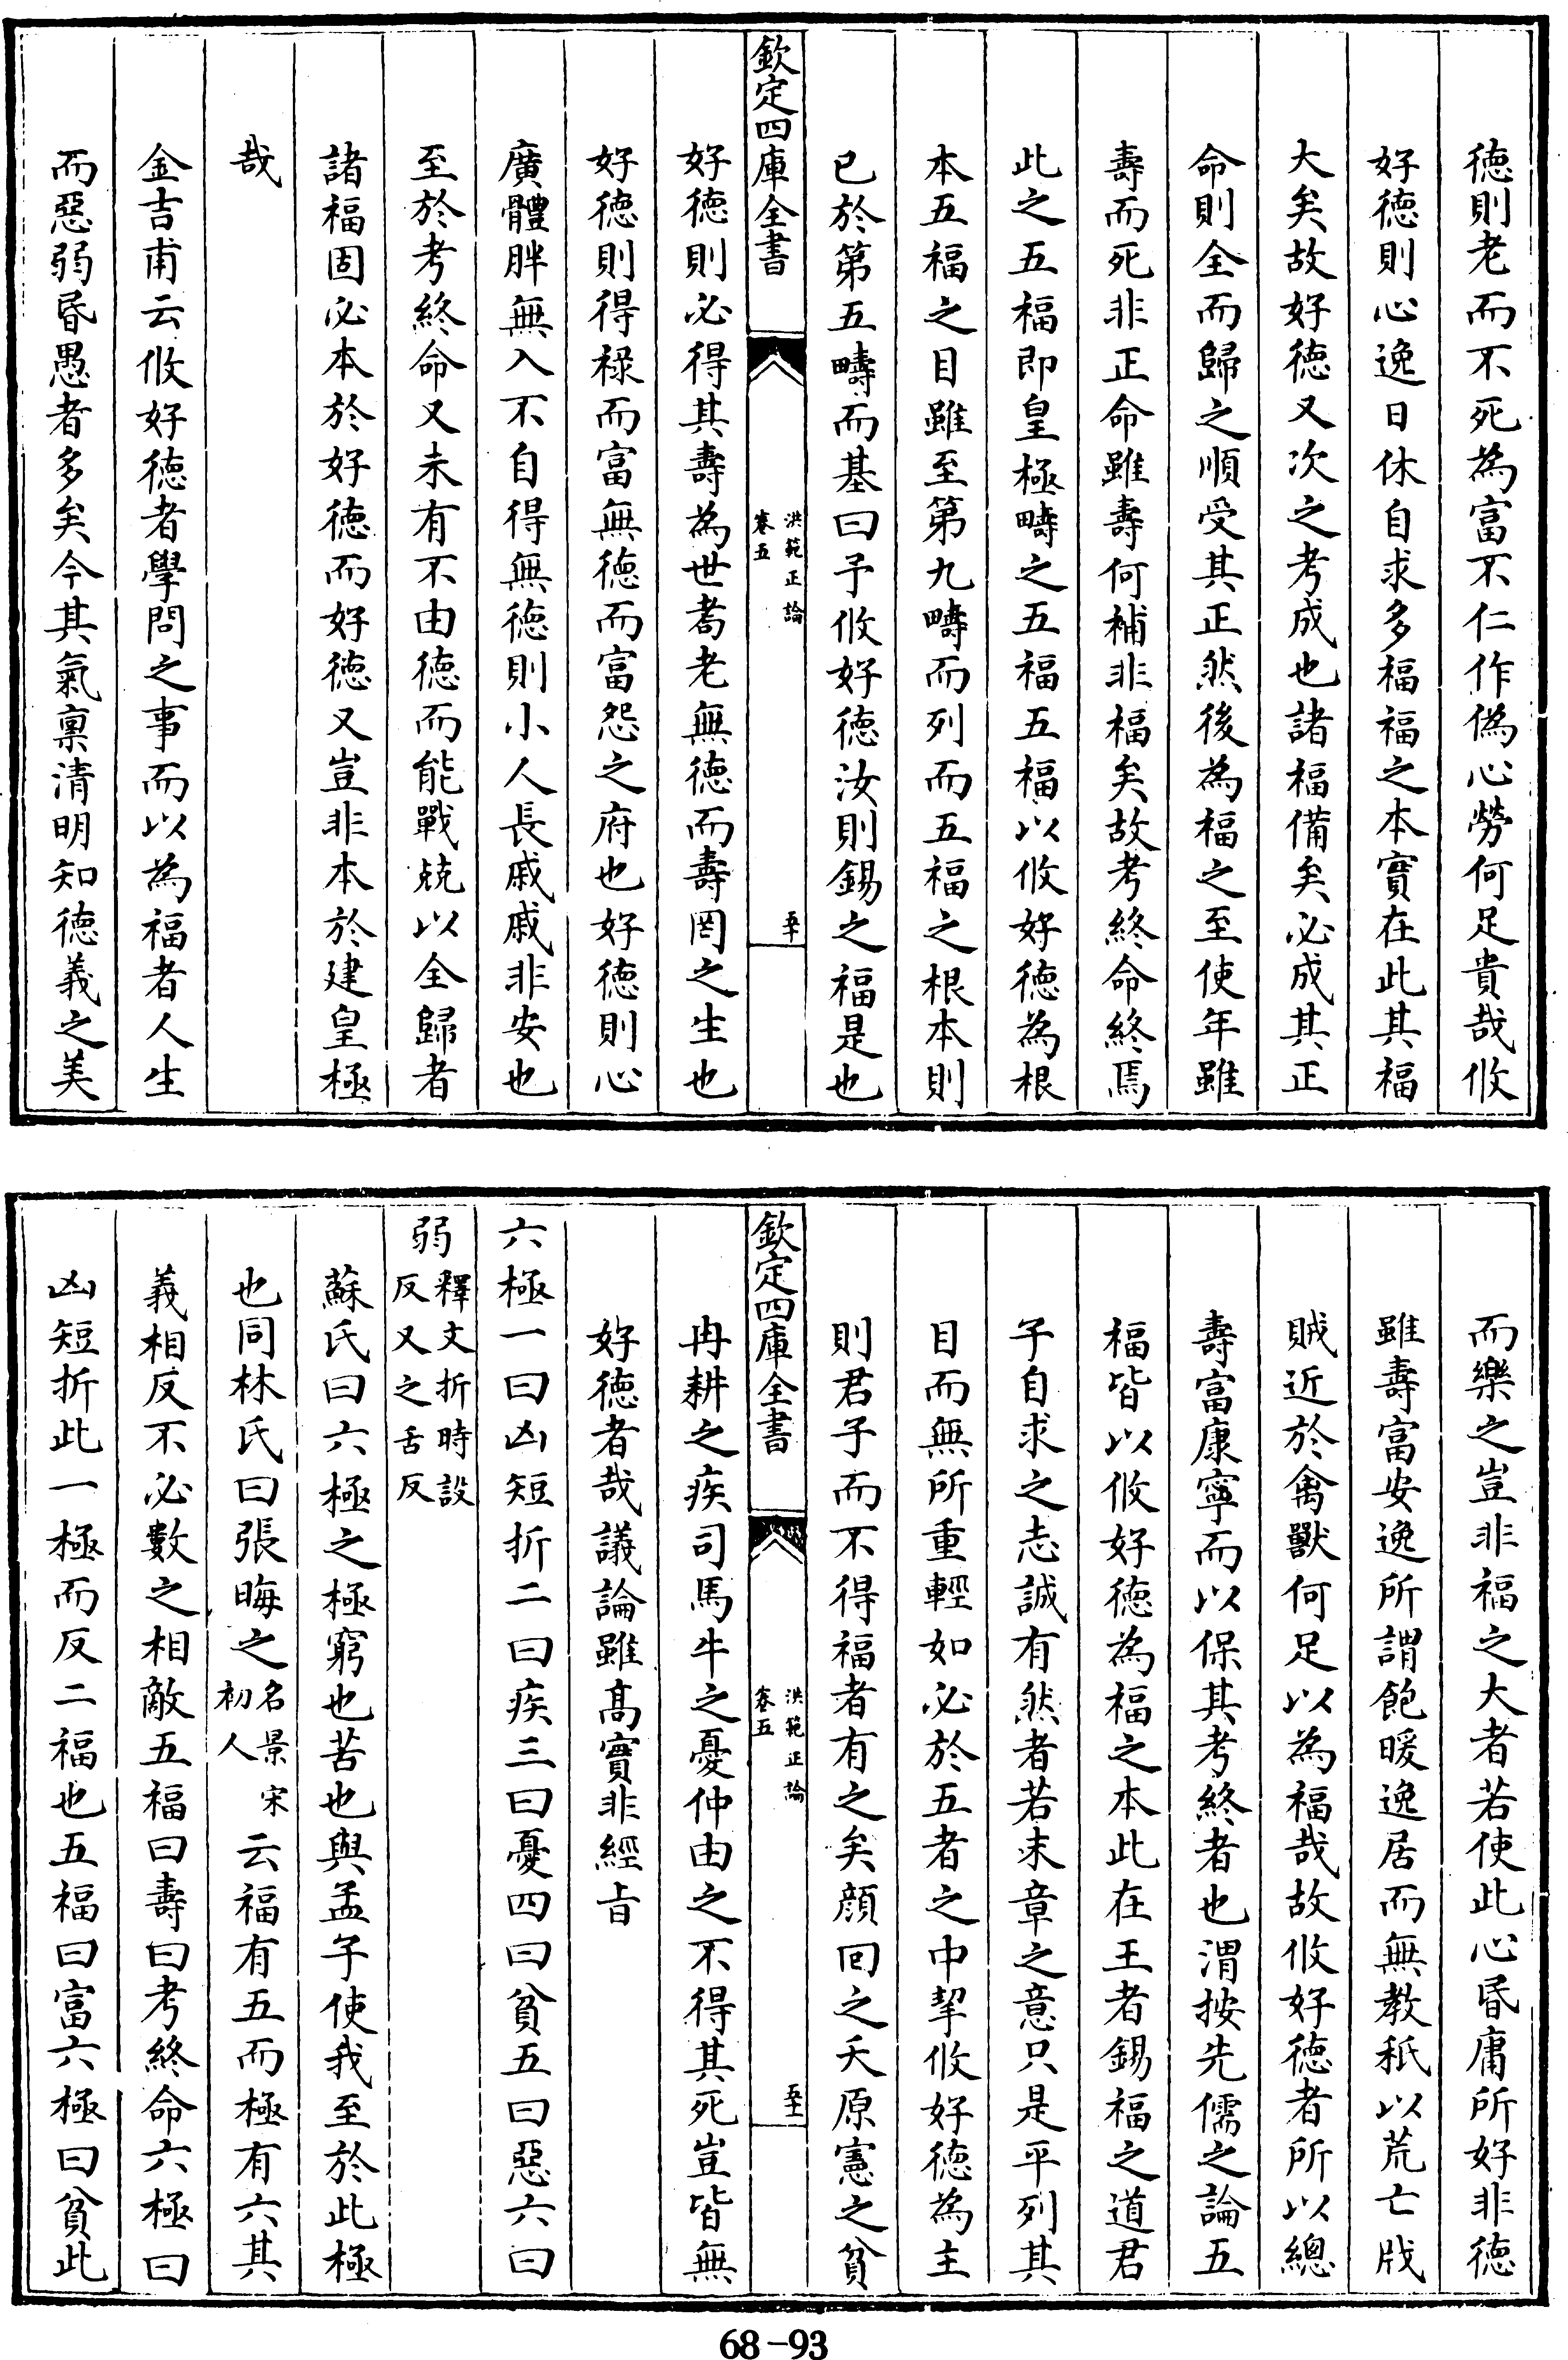 德則老而不死為富不仁作偽心勞何足貴哉攸
好德則心逸日休自求多福福之本實在此其福
大矣故好德又次之考成也諸福備矣必成其正
命則全而歸之順受其正然後為福之至使年雖
壽而死非正命雖壽何補非福矣故考終命終焉
此之五福即皇極疇之五福五福以攸好德為根
本五福之目雖至第九疇而列而五福之根本則
已於第五疇而基曰予攸好德汝則錫之福是也
欽定四庫全書
洪範正論
卷五
五十
好德則必得其壽為世耇老無德而壽罔之生也
好德則得祿而富無德而富怨之府也好德則心
廣體胖無入不自得無德則小人長戚戚非安也
至於考終命又未有不由德而能戰兢以全歸者
諸福固必本於好德而好德又豈非本於建皇極
哉
金吉甫云攸好德者學問之事而以為福者人生
而惡弱昬愚者多矣今其氣稟清明知德義之美
而樂之豈非福之大者若使此心昬庸所好非德
雖壽富安逸所謂飽暖逸居而無教秖以荒亡戕
賊近於禽獸何足以為福哉故攸好德者所以總
壽富康寧而以保其考終者也渭按先儒之論五
福皆以攸好德為福之本此在王者錫福之道君
子自求之志誠有然者若末章之意只是平列其
目而無所重輕如必於五者之中挈攸好德為主
則君子而不得福者有之矣顔回之夭原憲之貧
欽定四庫全書
洪範正論
卷五
五十一
冉耕之疾司馬牛之憂仲由之不得其死豈皆無
好德者哉議論雖髙實非經旨
六極一曰凶短折二曰疾三曰憂四曰貧五曰惡六曰
弱釋文折時設反又之舌反
蘇氏曰六極之極窮也苦也與孟子使我至於此極
也同林氏曰張晦之名景宋初人云福有五而極有六其
義相反不必數之相敵五福曰壽曰考終命六極曰
凶短折此一極而反二福也五福曰富六極曰貧此
68-93